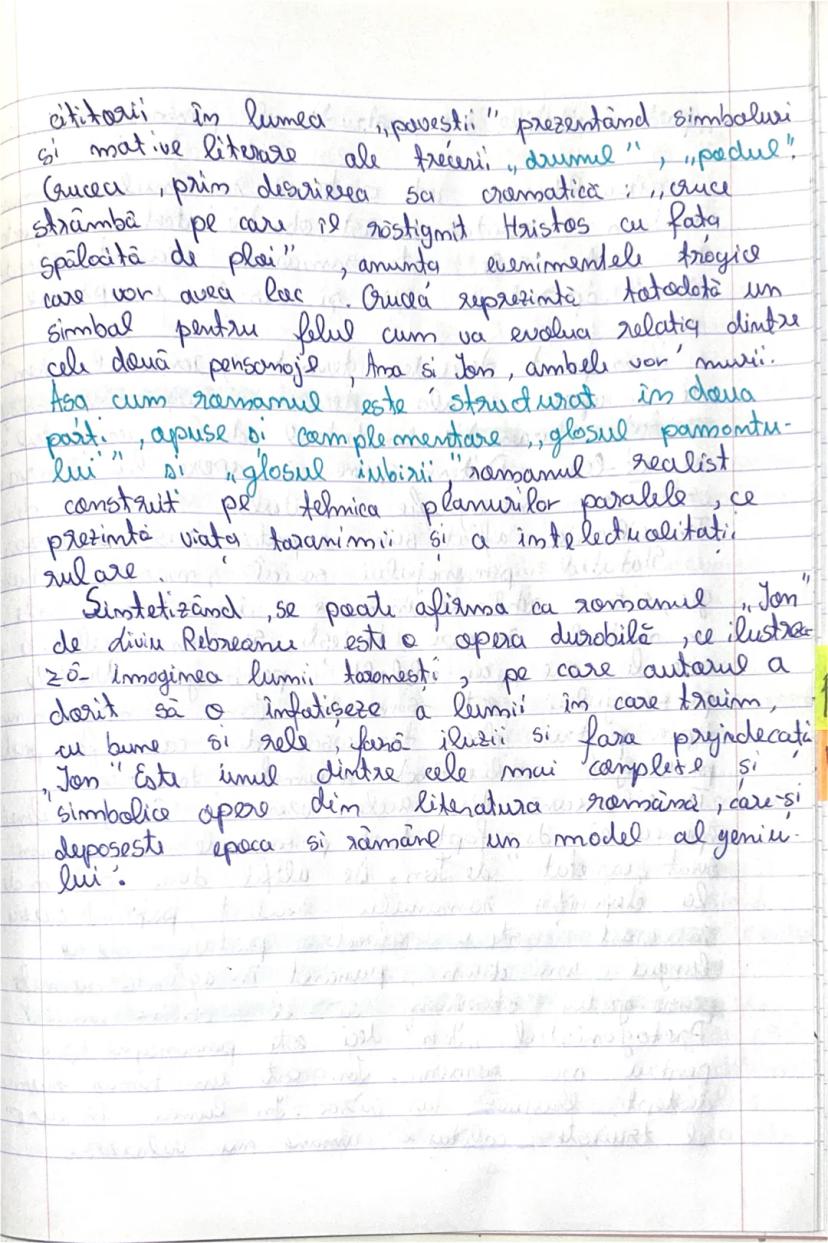 cititorii în lumea „povestii" prezentând simboluri
și motive literare ale trecerii „drumul", „podul".
Crucea, prim descrierea sa cromatică: „cruce
strâmbă pe care îl răstigmit Hristos cu fața
spălăcită de ploi", anunța evenimentele tragice
care vor avea loc. Crucea reprezintă totodată un
simbol pentru felul cum va evolua relația dintre
cele două personaje, Ana si Ion, ambele vor murii.
Așa cum romanul este structurat în doua
parti, apuse și complementare „glasul pamantu-
lui" si „glasul iubirii", romanul realist
construit pe tehnica planurilor paralele, ce
prezintă viața taranimii și a intelectualitații
rulare.
Sintetizând, se poate afirma ca romanul „Ion"
de Liviu Rebreanu este o opera durabilă, ce ilustrea-
ză imaginea lumii taromești, pe care autorul a
dorit să o înfatișeze a lumii în care traim,
cu bune si rele, fară iluzii si fara prejudecați
„Ion" Este unul dintre cele mai complete și
simbolice opere din literatura română, care-și
depasește epoca si rămâne un model al geniu-
lui.